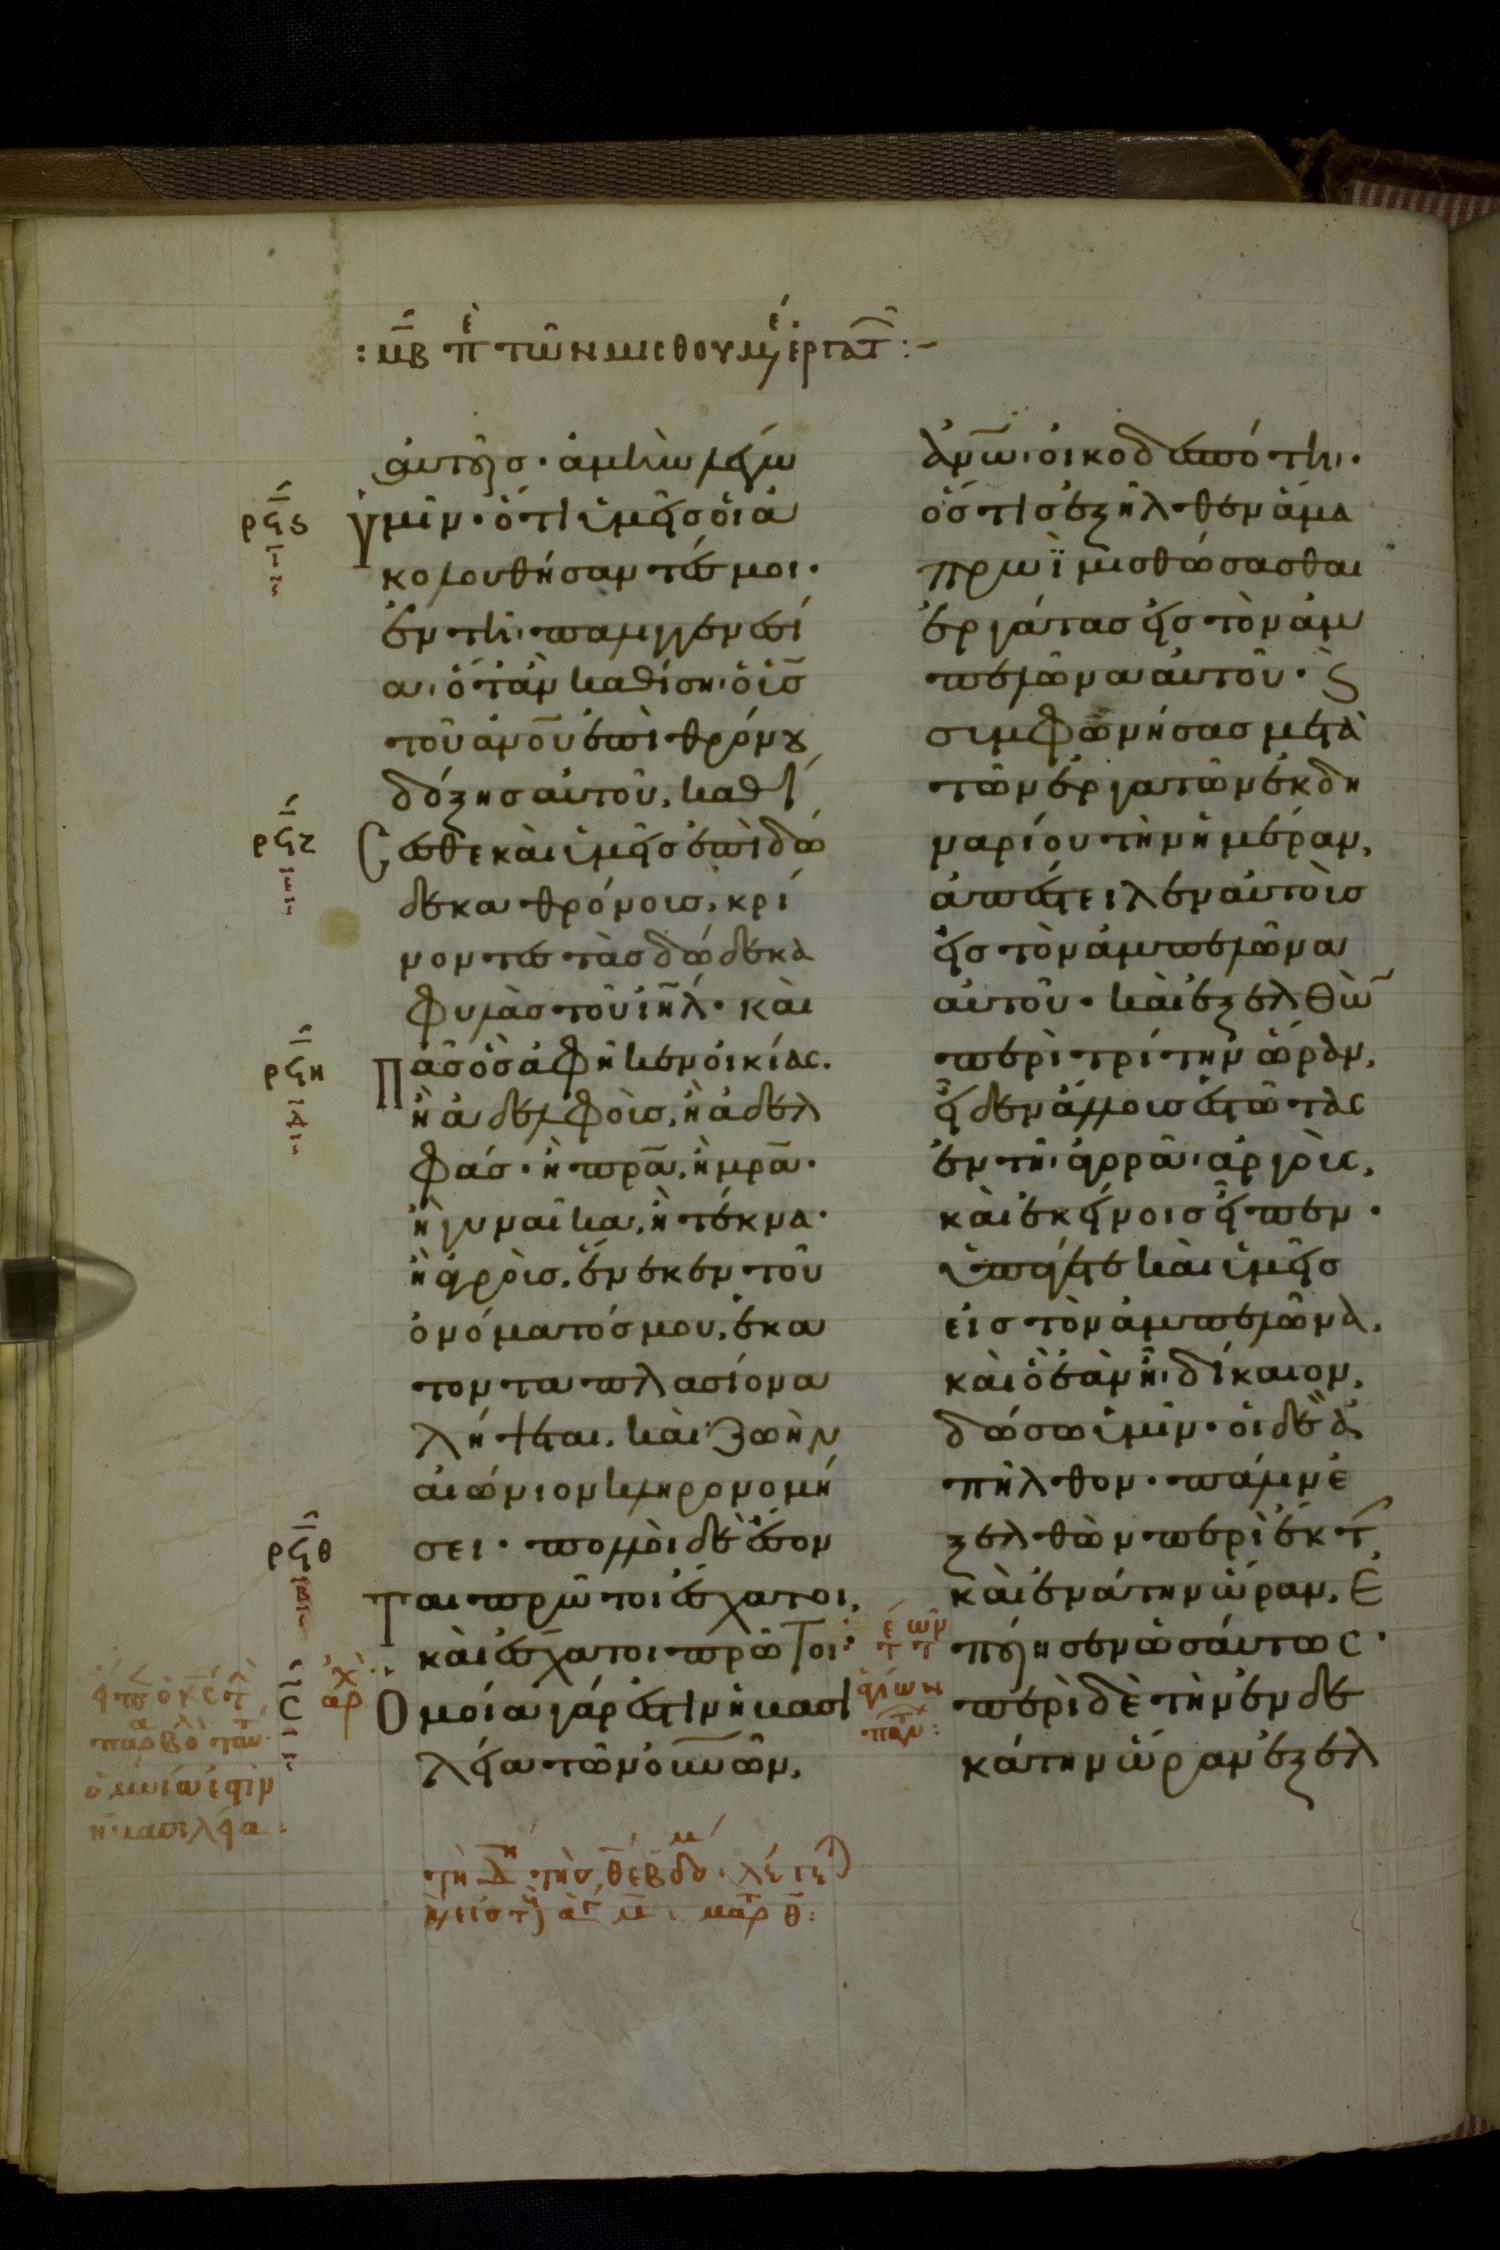 : μ̅β̅ πε̇ τῶν μισθουμέ ἐργατ :-
αὐτοῖσ · ἀμὴν λέγω
ὑμῖν · ὅτι ὑμεῖσ οἱ ἀ
κολουθήσαντέσ μοι ·
ἐν τῆ παλιγγενεσί
α, ὅταν καθίση ὁ υ̅σ̅
τοῦ α̅ν̅ο̅υ̅ ἐπὶ θρόνου
δόξησ αὐτοῦ, καθί
σεσθε καὶ ὑμεῖσ ἐπὶ δώ
δεκα θρόνουσ, κρί
νοντεσ τὰσ δώδεκα
φυλὰσ τοῦ ι̅η̅λ̅ · καὶ
πᾶσ ὃσ ἀφῆκεν οἰκίασ.
ἢ ἀδελφοὺσ, ἢ ἀδελ
φάσ · ἢ π̅ρ̅α̅, ἢ μ̅ρ̅α̅ ·
ἢ γυναῖκα, ἢ τέκνα ·
ἢ ἀγροὺσ, ἕνεκεν τοῦ
ὀνόματόσ μου, ἑκα
τονταπλασίονα
λήψεται, καὶ ζωὴν
αἰώνιον κληρονομή
σει · πολλοὶ δὲ ἔσον
ται πρῶτοι ἔσχατοι,
καὶ ἔσχατοι πρῶτοι :
Ὁμοία γάρ ἐστιν ἡ βασι
λεία τῶν ο̅υ̅ν̅ῶν,
α̅ν̅ω̅ οἰκοδεσπότη ·
ὅστισ ἐξῆλθεν ἅμα
πρωῒ μισθώσασθαι
ἐργάτασ εἰσ τὸν ἀμ
πελῶνα αὐτοῦ · ϗ
συμφωνήσασ μετὰ
τῶν ἐργατῶν ἐκ δη
ναρίου τὴν ἡμέραν,
ἀπέστειλεν αὐτοὺσ
εἰσ τὸν ἀμπελῶνα
αὐτοῦ · καὶ ἐξελθὼ̅
περὶ τρίτην ὥραν,
εἶδεν ἄλλουσ ἑστῶτασ
ἐν τῆ ἀγορᾶ ἀργοὺσ,
καὶ ἐκείνοισ εἶπεν ·
ὑπάγετε καὶ ὑμεῖσ
εἰσ τὸν ἀμπελῶνα,
καὶ ὃ ἐὰν ἦ δίκαιον,
δώσω ὑμῖν · οἱ δὲ ἀ
πῆλθον · πάλιν ἐ
ξελθὼν περὶ ἕκτ
καὶ ἐνάτην ὥραν, ἐ
ποίησεν ὡσαύτωσ ·
περὶ δὲ τὴν ἑνδε
κάτην ὥραν ἐξελ
ρϟϛ
ρϟζ
ρϟη
ρϟθ
ιβ
σ
ἀρχ
εἶπ ὁ κ̅σ̅ τ
παρβο ταυ
ὁμοιώθη
ἡ βασιλεία